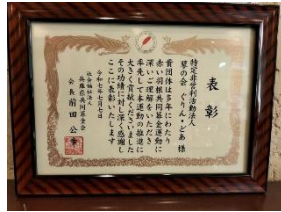 表彰
特定非営利活動法人
草の会 ぐりぃん・どあ 様
貴団体は多年にわたり
赤い羽根共同募金運動に
深いご理解をいただき
率先して本運動の推進に
大きく貢献くださいました
その功績に対し深く感謝し
ここに表彰いたします
令和七年七月七日
社会福祉法人
兵庫県共同募金会
会長 前田 公幸